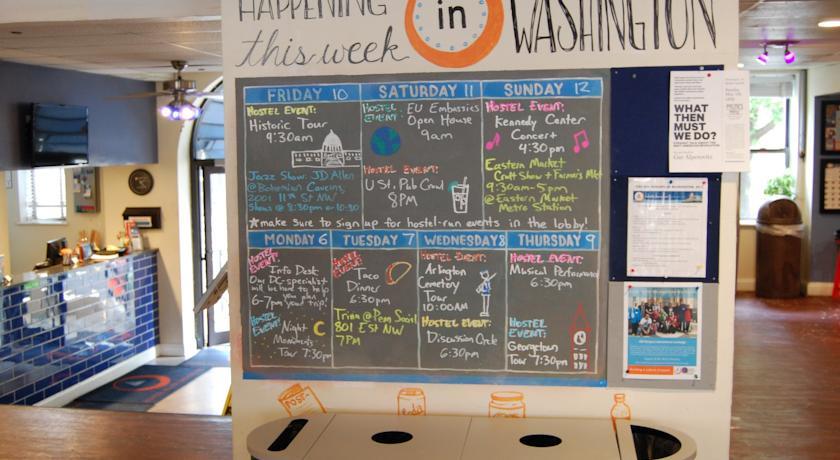 HAPPENING
this week
in
WASHINGTON
FRIDAY 10
HOSTEL EVENT:
Historic Tour
9:30am
Jazz Show: JD Allen
@ Bohemian Caverns,
2001 11th St NW
Shows @ 8:30pm or 10:30
SATURDAY 11
HOSTEL EVENT:
EU Embassies
Open House
9am
HOSTEL EVENT:
U St. Pub Crawl
8PM
SUNDAY 12
HOSTEL EVENT:
Kennedy Center
Concert
4:30pm
Eastern Market
Craft Show + Farmer's Mkt
9:30am-5pm
@ Eastern Market
Metro Station
★make sure to sign up for hostel-run events in the lobby!
MONDAY 6
HOSTEL EVENT:
Info Desk
Our DC-specialist
will be here to help
you plan
your trip!
6-7pm
HOSTEL EVENT:
Night
Monuments
Tour 7:30pm
TUESDAY 7
HOSTEL EVENT:
Taco
Dinner
6:30pm
Trivia @ Penn Social
801 E St NW
7PM
WEDNESDAY 8
HOSTEL EVENT:
Arlington
Cemetery
Tour
10:00AM
HOSTEL EVENT:
Discussion Circle
6:30pm
THURSDAY 9
HOSTEL EVENT:
Musical Performance
6:30pm
HOSTEL EVENT:
Georgetown
Tour 7:30pm
WHAT
THEN
MUST
WE DO?
Gar Alperovitz